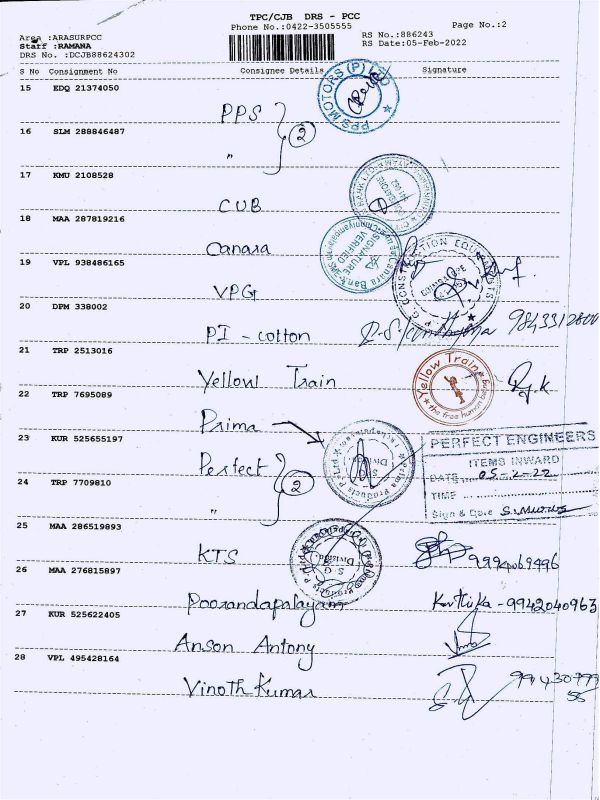 TPC/CJB DRS - PCC
Phone No.:0422-3505555 Page No.:2
Area :ARASURPCC RS No.:886243
Staff :RAMANA RS Date:05-Feb-2022
DRS No. :DCJB88624302
S No Consignment No Consignee Details Signature
15 EDQ 21374050 PPS
PPS MOTORS (P) LTD
16 SLM 288846487 " 2
17 KMU 2108528 CUB
18 MAA 287819216 Canara
SIGNATURE VERIFIED
Canara Bank
19 VPL 938486165 VPG
20 DPM 338002 PI - cotton
21 TRP 2513016 Yellow Train
Yellow Train
the free human being
22 TRP 7695089 Prima
23 KUR 525655197 Perfect
PERFECT ENGINEERS
ITEMS INWARD
DATE 05-2-22
TIME
Sign & Date
24 TRP 7709810 " 2
25 MAA 286519893 KTS 9994069496
26 MAA 276815897 Poorandapalayam Karthika - 9942040963
27 KUR 525622405 Anson Antony
28 VPL 495428164 Vinoth Kumar